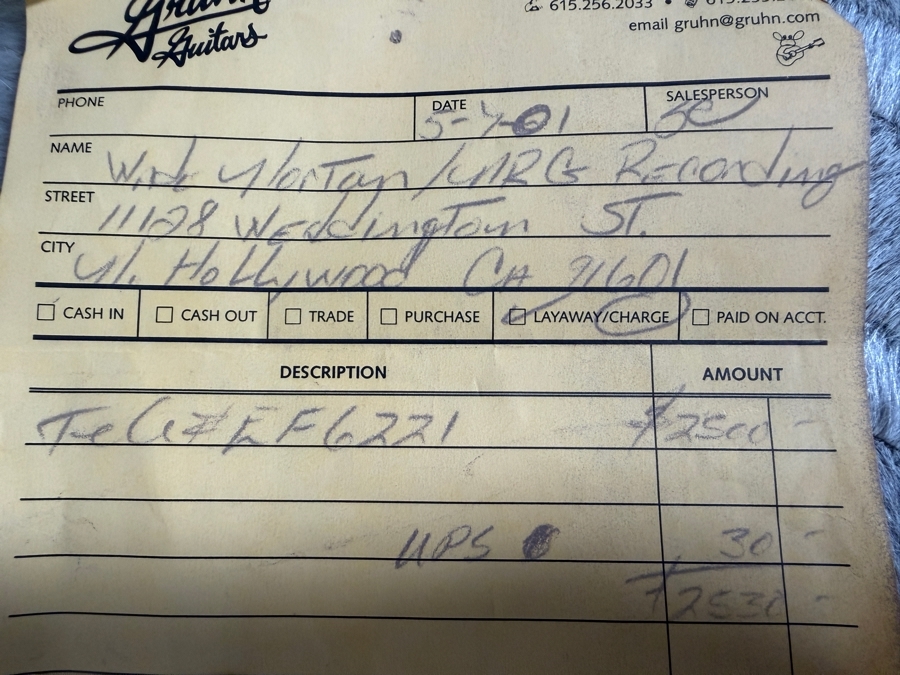 Gruhn
Guitars
615.256.2033
email gruhn@gruhn.com
PHONE
DATE 5-7-01
SALESPERSON
NAME /MRG Recording
STREET 11128 Weddington ST.
CITY N. Hollywood CA 91601
CASH IN CASH OUT TRADE PURCHASE LAYAWAY/CHARGE PAID ON ACCT.
DESCRIPTION AMOUNT
EF6221 $2500 -
UPS 30 -
$2530 -